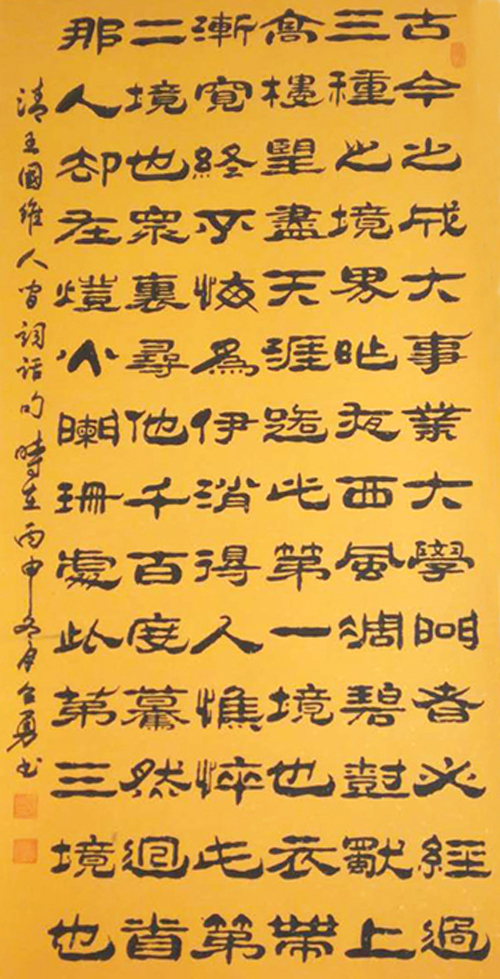 古今之成大事業大學問者必經過
三種之境界昨夜西風凋碧樹獨上
高樓望盡天涯路此第一境也衣帶
漸寬終不悔為伊消得人憔悴此第
二境也眾裏尋他千百度驀然迴首
那人却在燈火闌珊處此第三境也
清王國維人間詞話句時在丙申冬月勇書